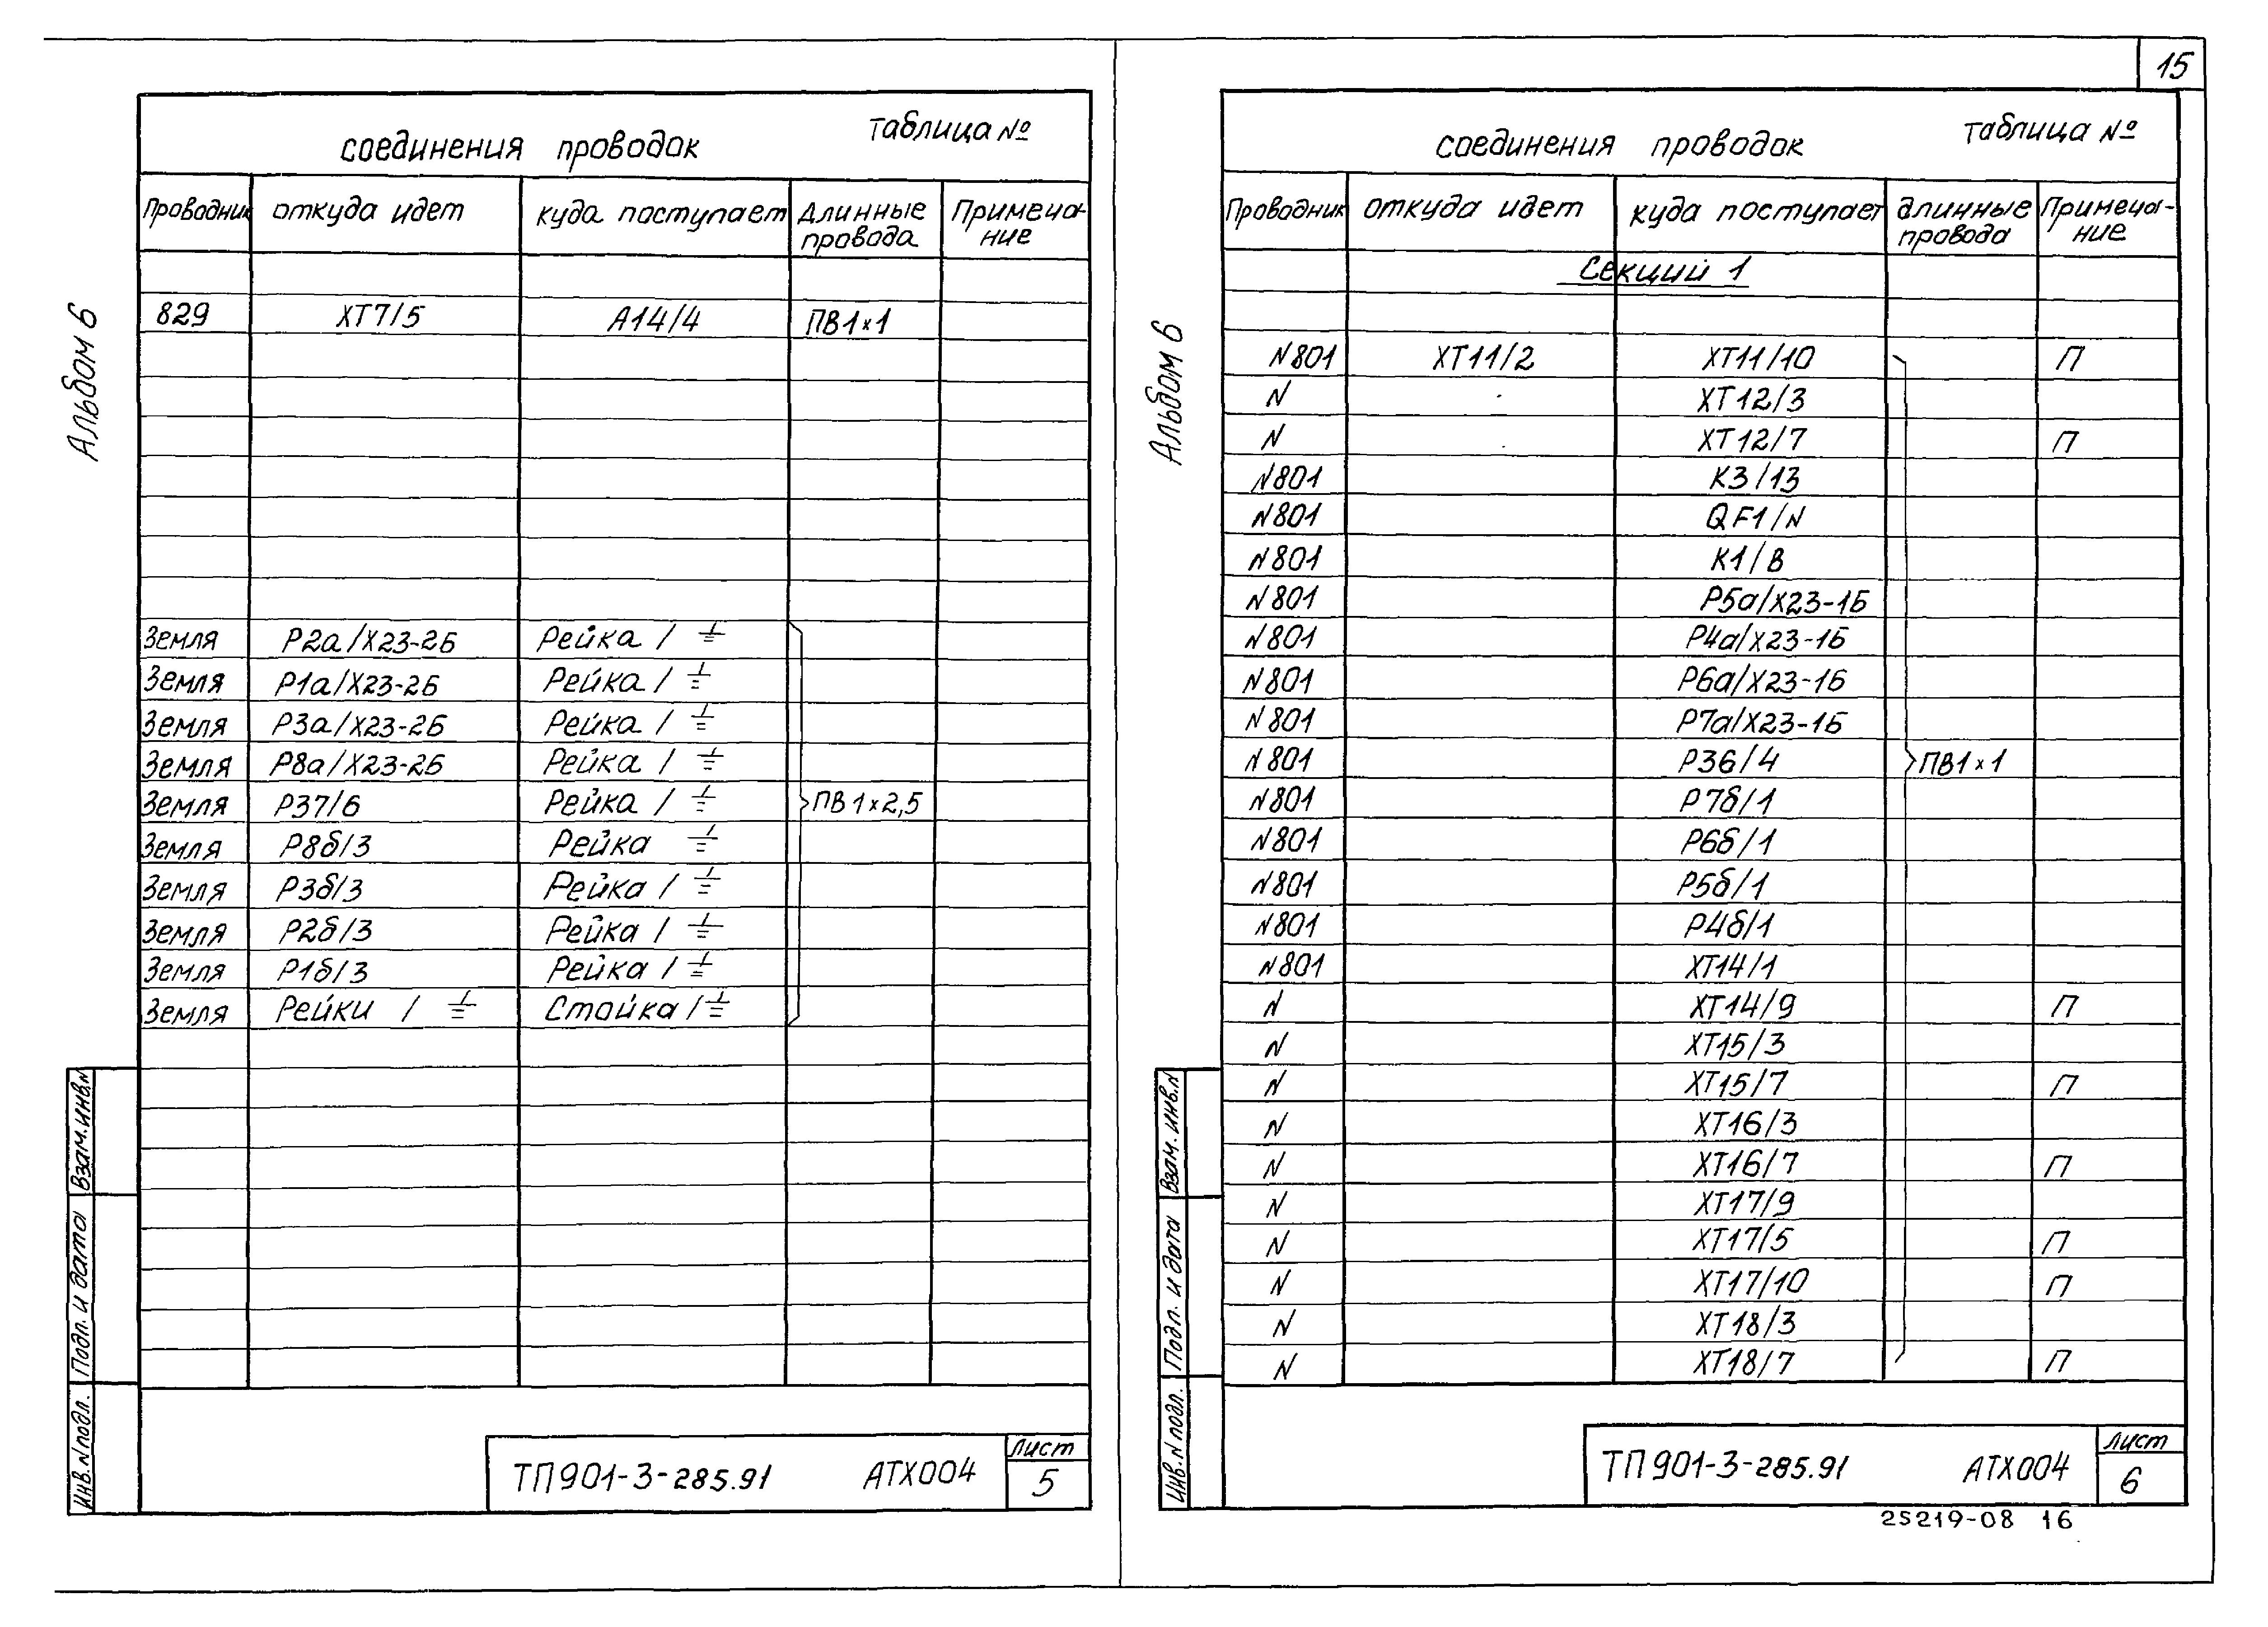 15
Альбом 6
соединения проводок таблица №
Проводник откуда идет куда поступает Длинные провода Примеча-ние
829 ХТ7/5 А14/4 ПВ1×1
Земля Р2а/Х23-2Б Рейка / ⏚
Земля Р1а/Х23-2Б Рейка / ⏚
Земля Р3а/Х23-2Б Рейка / ⏚
Земля Р8а/Х23-2Б Рейка / ⏚
Земля Р37/6 Рейка / ⏚ ПВ1×2,5
Земля Р8б/3 Рейка ⏚
Земля Р3б/3 Рейка / ⏚
Земля Р2б/3 Рейка / ⏚
Земля Р1б/3 Рейка / ⏚
Земля Рейки / ⏚ Стойка / ⏚
Взам.инв.N
Подп. и дата
Инв.N подл.
ТП901-3-285.91 АТХ004 Лист 5
Альбом 6
соединения проводок таблица №
Проводник откуда идет куда поступает Длинные провода Примеча-ние
Секций 1
N801 ХТ11/2 ХТ11/10 П
N ХТ12/3
N ХТ12/7 П
N801 К3/13
N801 QF1/N
N801 К1/В
N801 Р5а/Х23-1Б
N801 Р4а/Х23-1Б
N801 Р6а/Х23-1Б
N801 Р7а/Х23-1Б
N801 Р36/4 ПВ1×1
N801 Р7б/1
N801 Р6б/1
N801 Р5б/1
N801 Р4б/1
N801 ХТ14/1
N ХТ14/9 П
N ХТ15/3
N ХТ15/7 П
N ХТ16/3
N ХТ16/7 П
N ХТ17/9
N ХТ17/5 П
N ХТ17/10 П
N ХТ18/3
N ХТ18/7 П
Взам. инв.N
Подп. и дата
Инв.N подл.
ТП901-3-285.91 АТХ004 Лист 6
25219-08 16